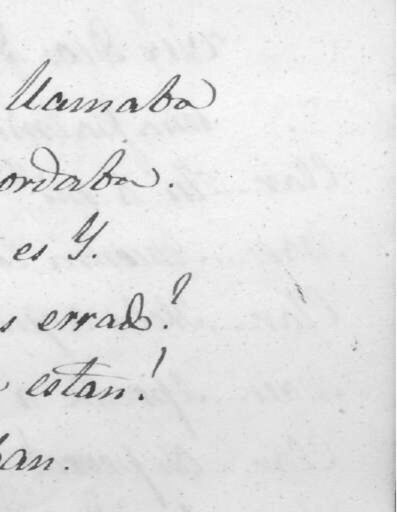 llamaba
ordaba.
es Y.
s errad?
estan!
an.